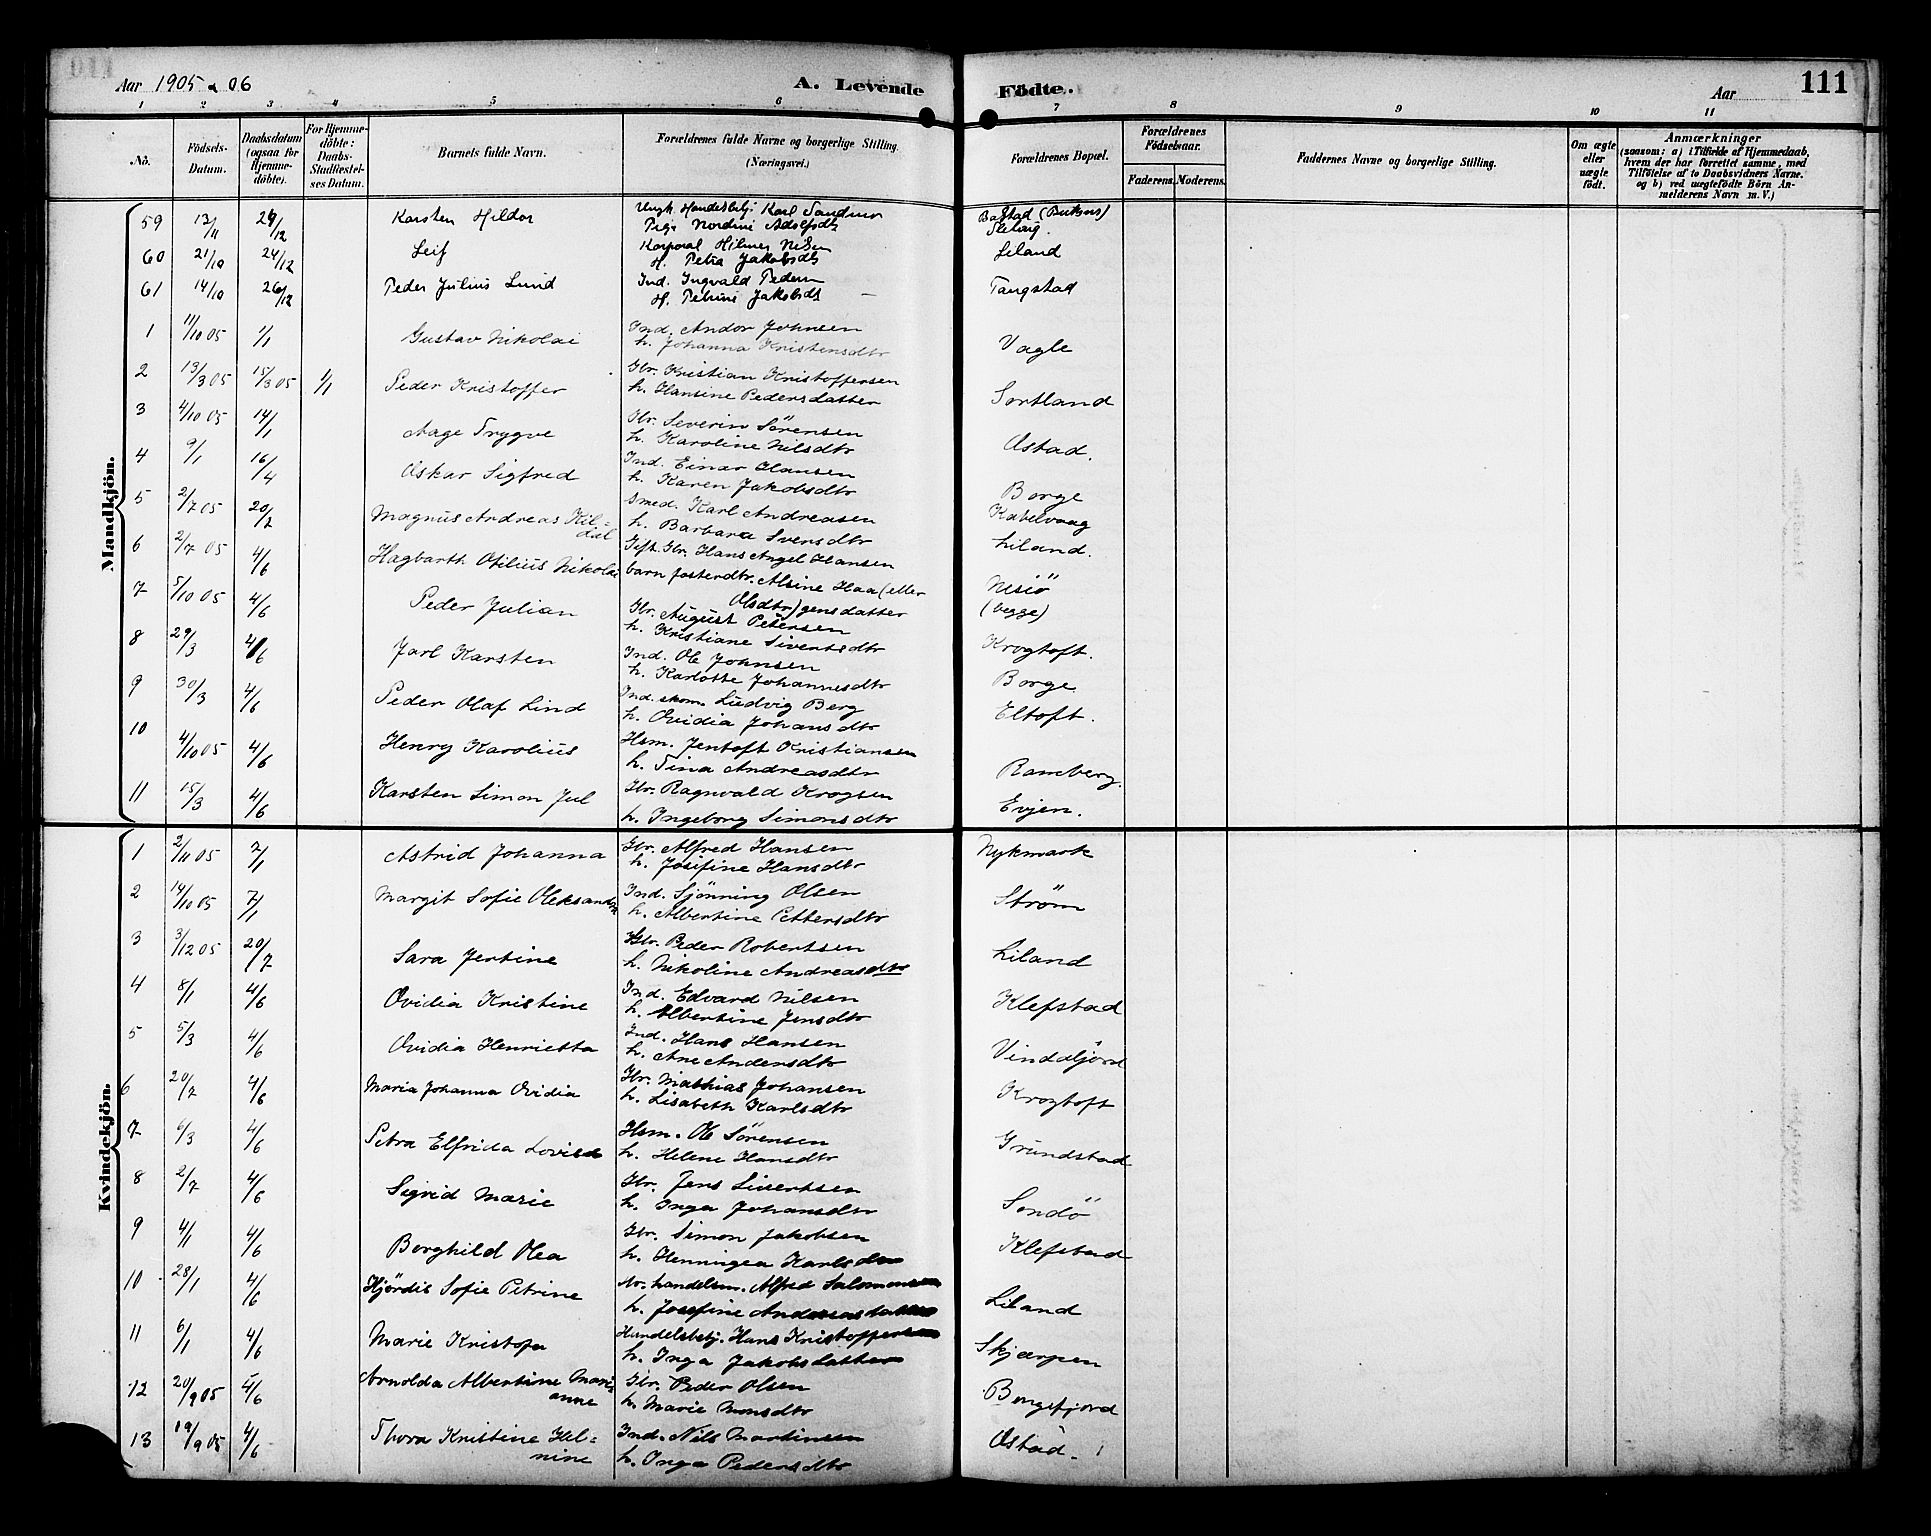 Aar 1905 & 06
A. Levende
Födte.
Aar
111
1 2 3 4 5 6 7 8 9 10 11
No.
Födsels-Datum.
Daabsdatum (ogsaa for Hjemme-döbte).
For Hjemme-döbte: Daabs-Stadfæstel-ses Datum.
Barnets fulde Navn.
Forældrenes fulde Navne og borgerlige Stilling. (Næringsvei.)
Forældrenes Bopæl.
Forældrenes Födselsaar.
Faderens. Moderens.
Faddernes Navne og borgerlige Stilling.
Om ægte eller uægte födt.
Anmærkninger
(saasom: a) i Tilfælde af Hjemmedaab, hvem der har forrettet samme, med Tilföielse af to Daabsvidners Navne. og b) ved uægtefödte Börn An-melderens Navn m. V.)
Mandkjön.
59 13/11 29/12 Karsten Hildor Ungk. Handelsbetj. Karl Sandmo
Pige Nordine Adolfsdtr
60 21/10 24/12 Leif Korporal Hilmer Nilsen Liland
H. Petra Jakobsdtr
61 14/10 26/12 Peder Julius Lund Ind. Ingvald Pedersen Tangstad
H. Petrine Jakobsdtr
1 11/10 05 1/1 Gustav Nikolai Ind. Andor Johnsen Vagle
h. Johanna Kristensdtr
2 13/3 05 15/3 05 1/1 Peder Kristoffer Gbr. Kristian Kristoffersen Sortland
h. Hansine Pedersdatter
3 4/10 05 14/1 Aage Trygve Gbr. Severin Sörensen Ostad.
h. Karoline Nilsdtr
4 9/1 16/4 Oskar Sigfred Ind. Einar Hansen Borge
h. Karen Jakobsdtr
5 2/7 05 20/2 Magnus Andreas Kil=dal Smed. Karl Andreasen Kabelvaag
h. Barbara Svensdtr
6 2/7 05 4/6 Hagbarth Otilius Nikolai Gift. Gbr. Hans Angel Hansen Liland.
barn fosterdtr. Alsine Haa (eller Olsdtr) gensdatter Nesiö (begge)
7 5/10 05 4/6 Peder Julian Gbr. August Petersen Krogtoft.
h. Kristiane Sivertsdtr
8 29/3 4/6 Jarl Karsten Ind. Ole Johnsen Borge
h. Karlotte Johannesdtr
9 30/3 4/6 Peder Olaf Lind Ind. skom. Ludvig Berg Eltoft.
h. Ovidia Johansdtr
10 4/10 05 4/6 Henry Karolius Hsm. Jentoft Kristiansen Ramberg
h. Tina Andreasdtr
11 15/3 4/6 Karsten Simon Jul Gbr. Ragnvald Krogsen Evjen.
h. Ingeborg Simonsdtr
Kvindekjön.
1 2/11 05 7/1 Astrid Johanna Gbr. Alfred Hansen Nykmark
h. Josifine Hansdtr
2 14/10 05 7/1 Margit Sofie Oleksandra Ind. Sjönning Olsen Ström
h. Albertine Pettersdtr
3 3/12 05 20/7 Sara Jertine Gbr. Peder Robertsen Liland
h. Nikoline Andreasdtr
4 8/1 4/6 Ovidia Kristine Ind. Edvard Nilsen Klefstad
h. Albertine Jensdtr
5 5/3 4/6 Ovidia Henrietta Ind. Hans Hansen Vinddljord
h. Ane Andersdtr
6 20/7 4/6 Maria Johanna Ovidia Gbr. Mathias Johansen Krogtoft
h. Lisabeth Karlsdtr
7 6/3 4/6 Petra Elfrida Lovise Hsm. Ole Sörensen Grundstad
h. Helene Hansdtr
8 2/7 4/6 Sigrid Marie Gbr. Jens Sivertsen Sondö
h. Inga Johansdtr
9 4/1 4/6 Borghild Olea Gbr. Simon Jakobsen Klefstad
h. Henningea Karlsdtr
10 28/1 4/6 Hjördis Sofie Petrine Handelsm. Alfred Salomonsen Liland
h. Josefine Andreasdatter
11 6/1 4/6 Marie Kristofa Handelsbetj. Hans Kristoffersen Skjærpen
h. Inga Jakobsdatter
12 20/9 05 4/6 Arnolda Albertine Marianne Gbr. Peder Olsen Borgefjord
h. Marie Monsdtr
13 19/9 05 4/6 Thora Kristine Hel=nine Ind. Nils Martinsen Ostad.
h. Inga Pedersdtr